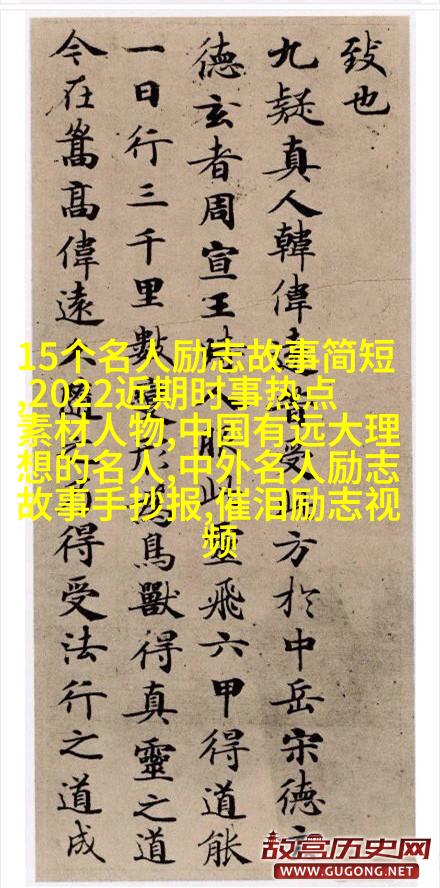 致也
九疑真人韓偉遠昔受此方於中岳宋德
德玄者周宣王時人服此靈飛六甲得道能
一日行三千里數變形為鳥獸得真靈之道
今在嵩高偉遠久得受法行之道成
15个名人励志故事简短
,2022近期时事热点
素材人物,中国有远大理
想的名人,中外名人励志
故事手抄报,催泪励志视
频
故宫历史网
WWW.GUGONG.NET